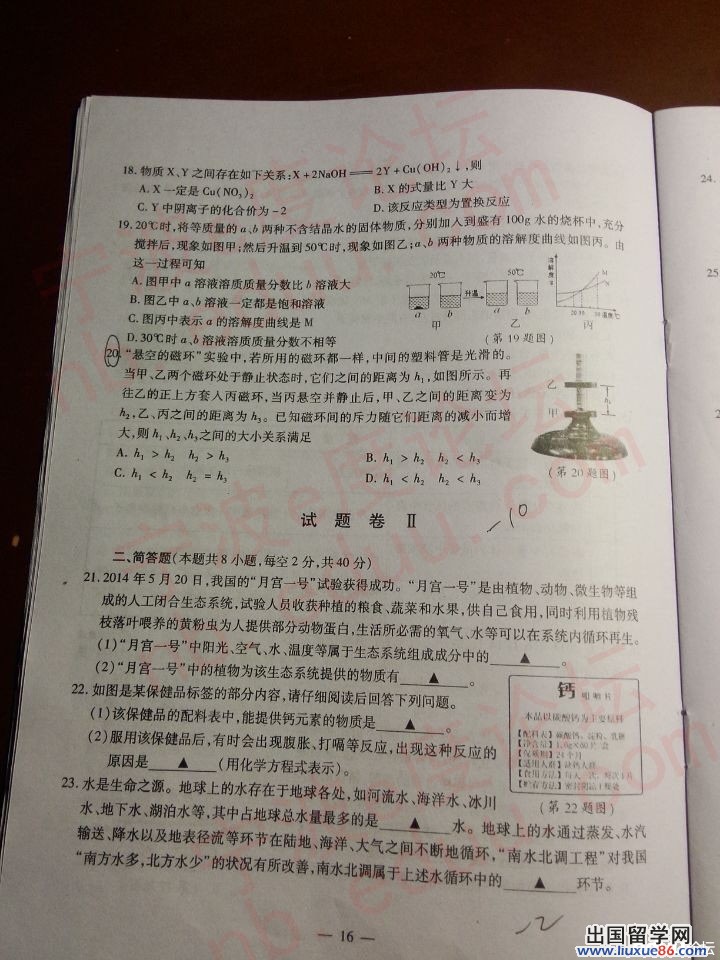 18. 物质 X、Y 之间存在如下关系:X + 2NaOH ══ 2Y + Cu(OH)₂↓,则
A. X 一定是 Cu(NO₃)₂
B. X 的式量比 Y 大
C. Y 中阴离子的化合价为 -2
D. 该反应类型为置换反应
19. 20℃时,将等质量的 a、b 两种不含结晶水的固体物质,分别加入到盛有 100g 水的烧杯中,充分
搅拌后,现象如图甲;然后升温到 50℃时,现象如图乙;a、b 两种物质的溶解度曲线如图丙。由
这一过程可知
A. 图甲中 a 溶液溶质质量分数比 b 溶液大
B. 图乙中 a、b 溶液一定都是饱和溶液
C. 图丙中表示 a 的溶解度曲线是 M
D. 30℃时 a、b 溶液溶质质量分数不相等
20℃
升温
50℃
a b
a b
甲
乙
丙
溶解度
M
N
20 30 50 温度/℃
(第 19 题图)
20. “悬空的磁环”实验中,若所用的磁环都一样,中间的塑料管是光滑的。
当甲、乙两个磁环处于静止状态时,它们之间的距离为 h₁,如图所示。再
往乙的正上方套入丙磁环,当丙悬空并静止后,甲、乙之间的距离变为
h₂,乙、丙之间的距离为 h₃。已知磁环间的斥力随它们距离的减小而增
大,则 h₁、h₂、h₃之间的大小关系满足
A. h₁ > h₂ h₂ > h₃
B. h₁ > h₂ h₂ < h₃
C. h₁ < h₂ h₂ = h₃
D. h₁ < h₂ h₂ < h₃
乙
甲
h₁
(第 20 题图)
试 题 卷 Ⅱ
-10
二、简答题(本题共 8 小题,每空 2 分,共 40 分)
21. 2014 年 5 月 20 日,我国的“月宫一号”试验获得成功。“月宫一号”是由植物、动物、微生物等组
成的人工闭合生态系统,试验人员收获种植的粮食、蔬菜和水果,供自己食用,同时利用植物残
枝落叶喂养的黄粉虫为人提供部分动物蛋白,生活所必需的氧气、水等可以在系统内循环再生。
(1)“月宫一号”中阳光、空气、水、温度等属于生态系统组成成分中的 ▲ 。
(2)“月宫一号”中的植物为该生态系统提供的物质有 ▲ 。
22. 如图是某保健品标签的部分内容,请仔细阅读后回答下列问题。
(1)该保健品的配料表中,能提供钙元素的物质是 ▲ 。
(2)服用该保健品后,有时会出现腹胀、打嗝等反应,出现这种反应的
原因是 ▲ (用化学方程式表示)。
钙 咀嚼片
本品以碳酸钙为主要原料
【配料表】碳酸钙、淀粉、乳糖
【净含量】1.0g×60片/盒
【保质期】24个月
【适用人群】缺钙人群
【食用方法】每天一次,每次1片
【贮存方法】密封阴凉干燥处
(第 22 题图)
23. 水是生命之源。地球上的水存在于地球各处,如河流水、海洋水、冰川
水、地下水、湖泊水等,其中占地球总水量最多的是 ▲ 水。地球上的水通过蒸发、水汽
输送、降水以及地表径流等环节在陆地、海洋、大气之间不断地循环,“南水北调工程”对我国
“南方水多,北方水少”的状况有所改善,南水北调属于上述水循环中的 ▲ 环节。
— 16 —
24.
25
2
出国留学网
www.liuxue86.com